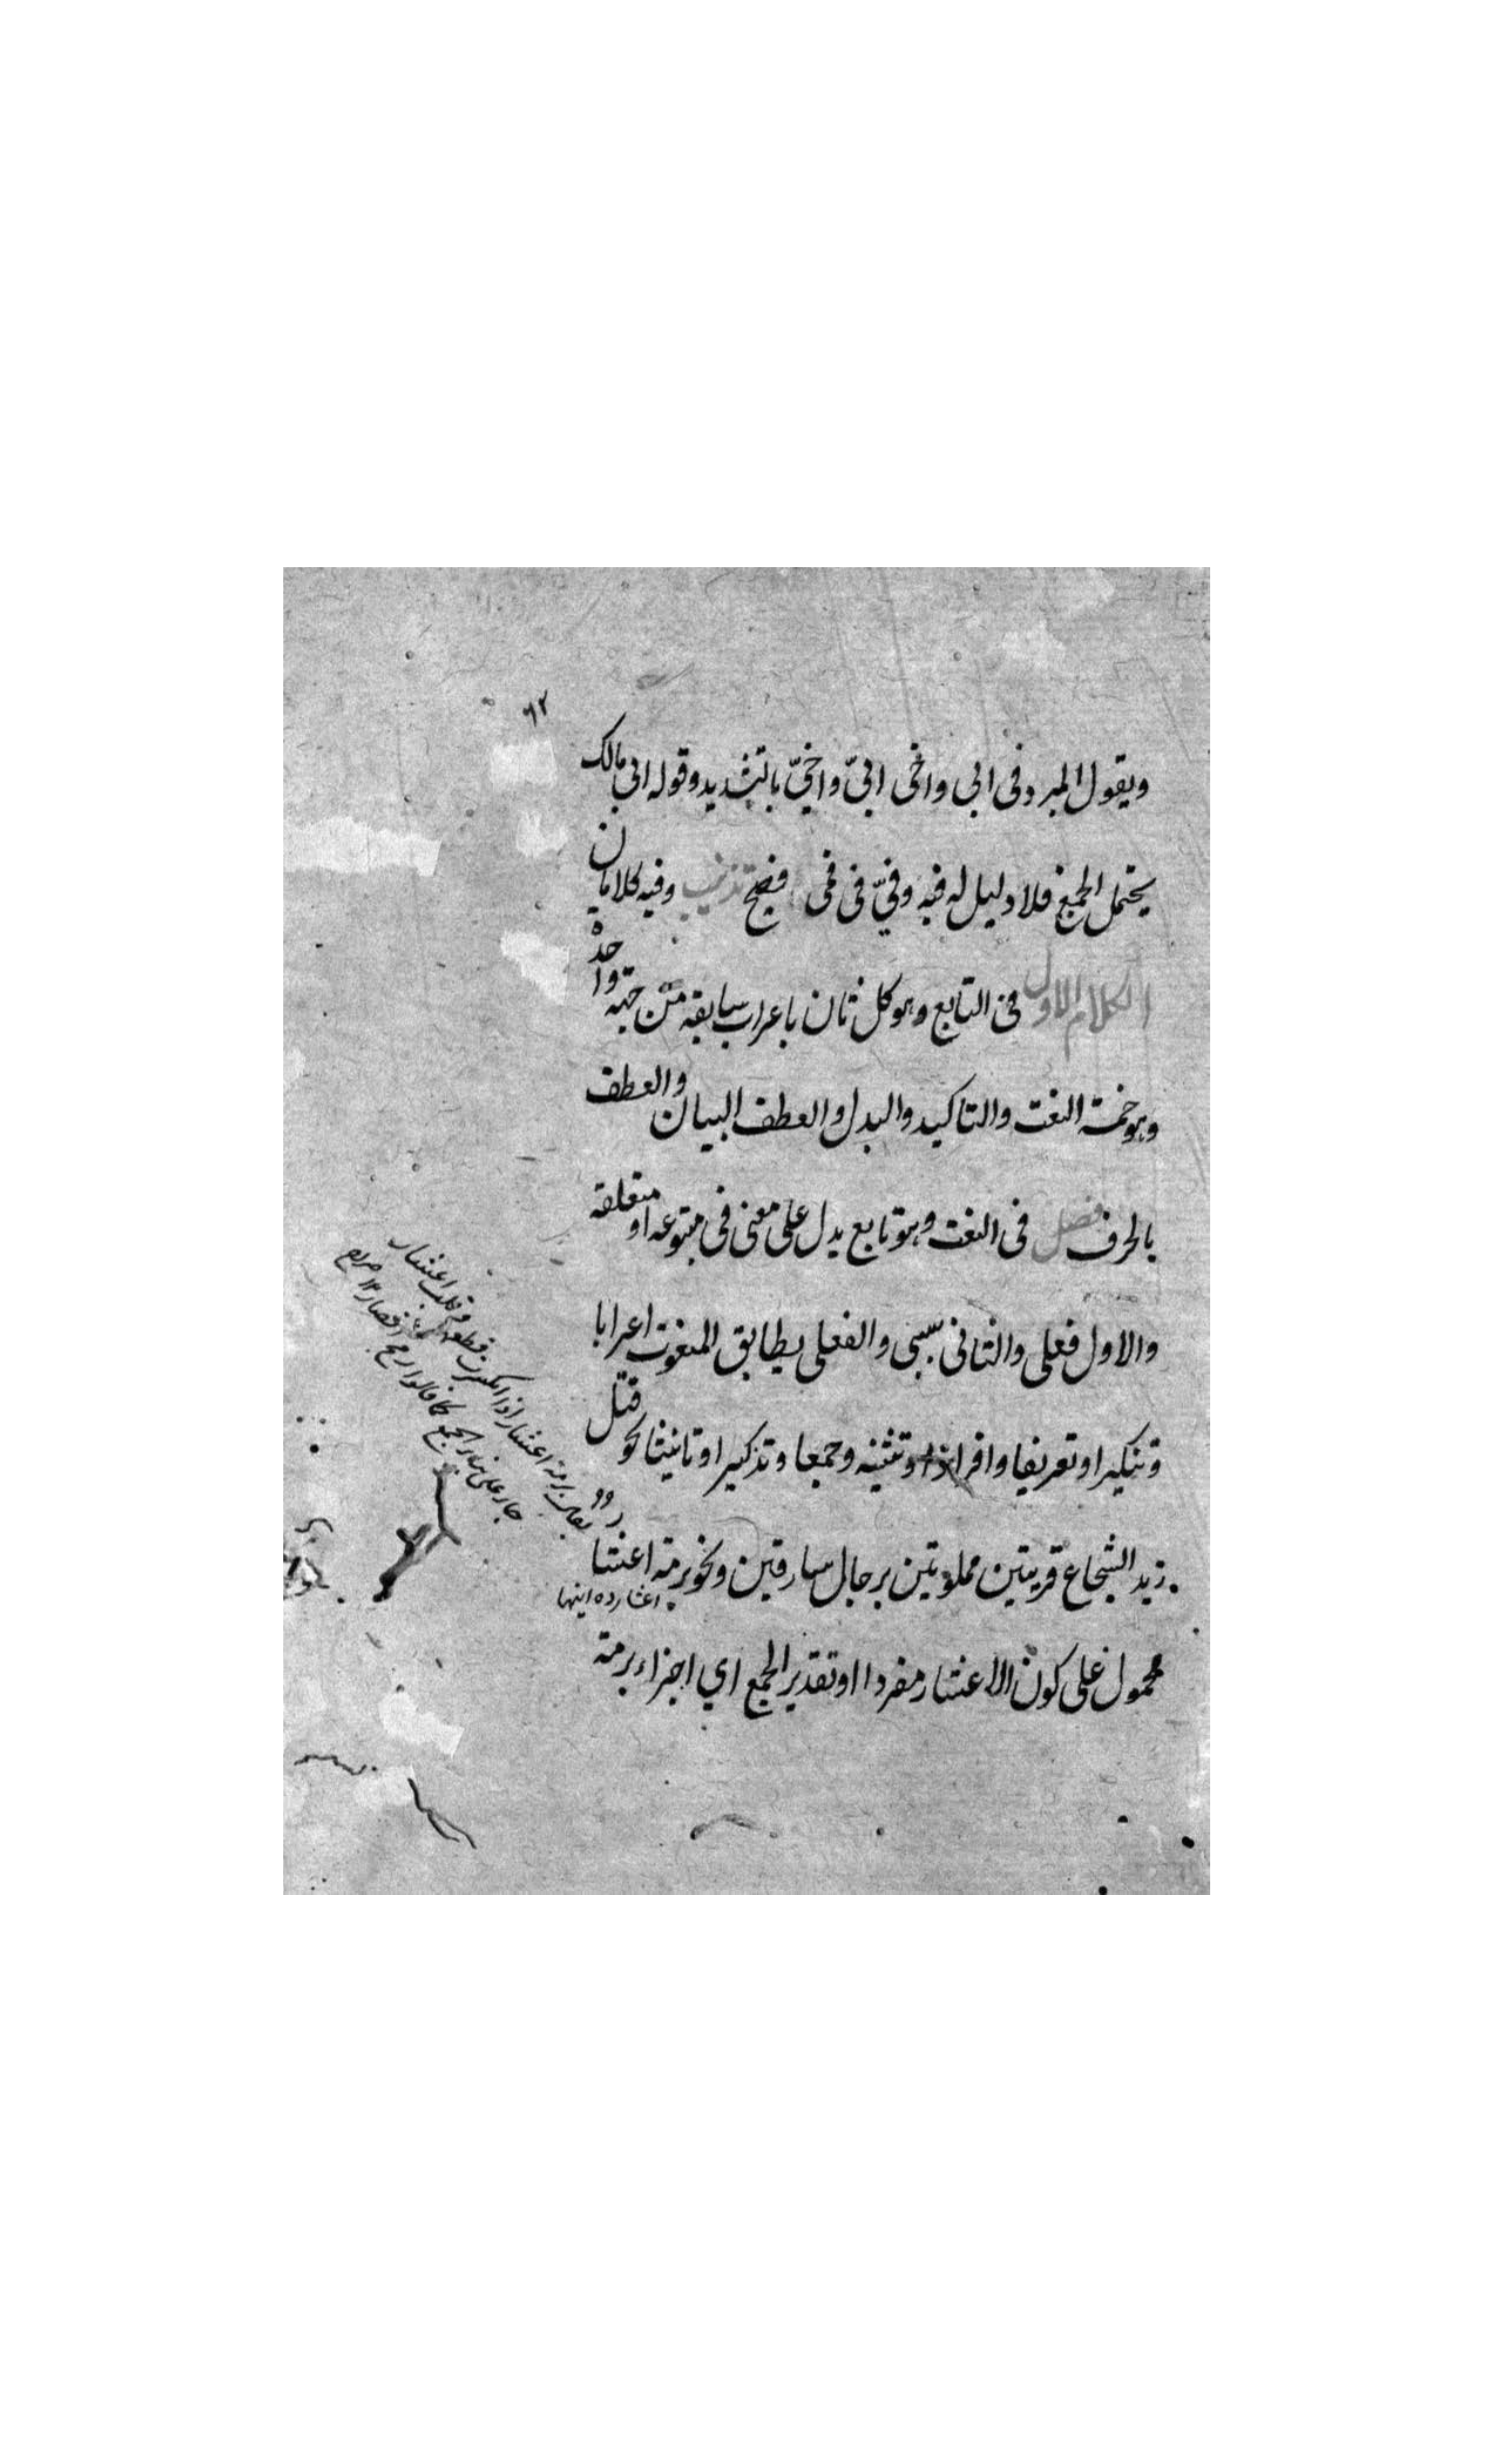 ٦٢
ويقول المبرد فى ابى واخى ابىّ واخىّ بالتشديد وقوله ابى مالك
يحتمل الجمع فلا دليل له فيه وفىّ فى فمى فصيح تذنيب وفيه كلامان
الكلام الاول فى التابع وهو كل ثان باعراب سابقه من جهة واحدة
وهو خمسة النعت والتاكيد والبدل والعطف البيان والعطف
بالحرف فصل فى النعت وهو تابع يدل على معنى فى متبوعه او متعلقه
والاول فعلى والثانى سببى والفعلى يطابق المنعوت اعرابا
وتنكيرا وتعريفا وافرادا وتثنيه وجمعا وتذكيرا وتانيثا نحو قتل
زيد الشجاع قريتين مملوتين برجال سارقين ونحو برمة اعشا
محمول على كون الاعشار مفردا او تقدير الجمع اي اجزاء برمة
يقال برمة اعشار اذا انكسرت قطعا وقلب اعشار
جاء على بناء الجمع كما قالوا رمح اقصاد ١٢ صراح